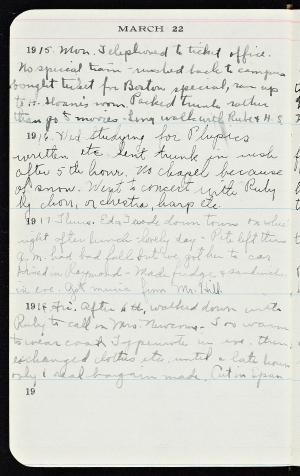 MARCH 22
1915. Mon. Telephoned to ticket office.
No special train - rushed back to campus
bought ticket for Boston special, ran up
to H. Sloanes room. Packed trunk rather
than go to movies - Long walk with Ruth & H. S.
1916. Wed. Studying for Physics
written etc. Sent trunk in rush
after 5th hour. No chapel because
of snow. West's concert with Ruby
by choir, orchestra, harp etc.
1917. Thurs. Eda & I rode down town
right after lunch - lovely day - Pete left this
A.M. had bad fall but we got her to car
Dined in Raymond - Made fudge & sandwiches
in eve. Got music from Mr. Hill
1918 Fri. After 4th, walked down with
Ruby to call on Mrs. Newsons. Too warm
to wear coat. Typewrote in eve. then
exchanged clothes etc. until a late hour
only 1 real bargain made. Cut in Span
19